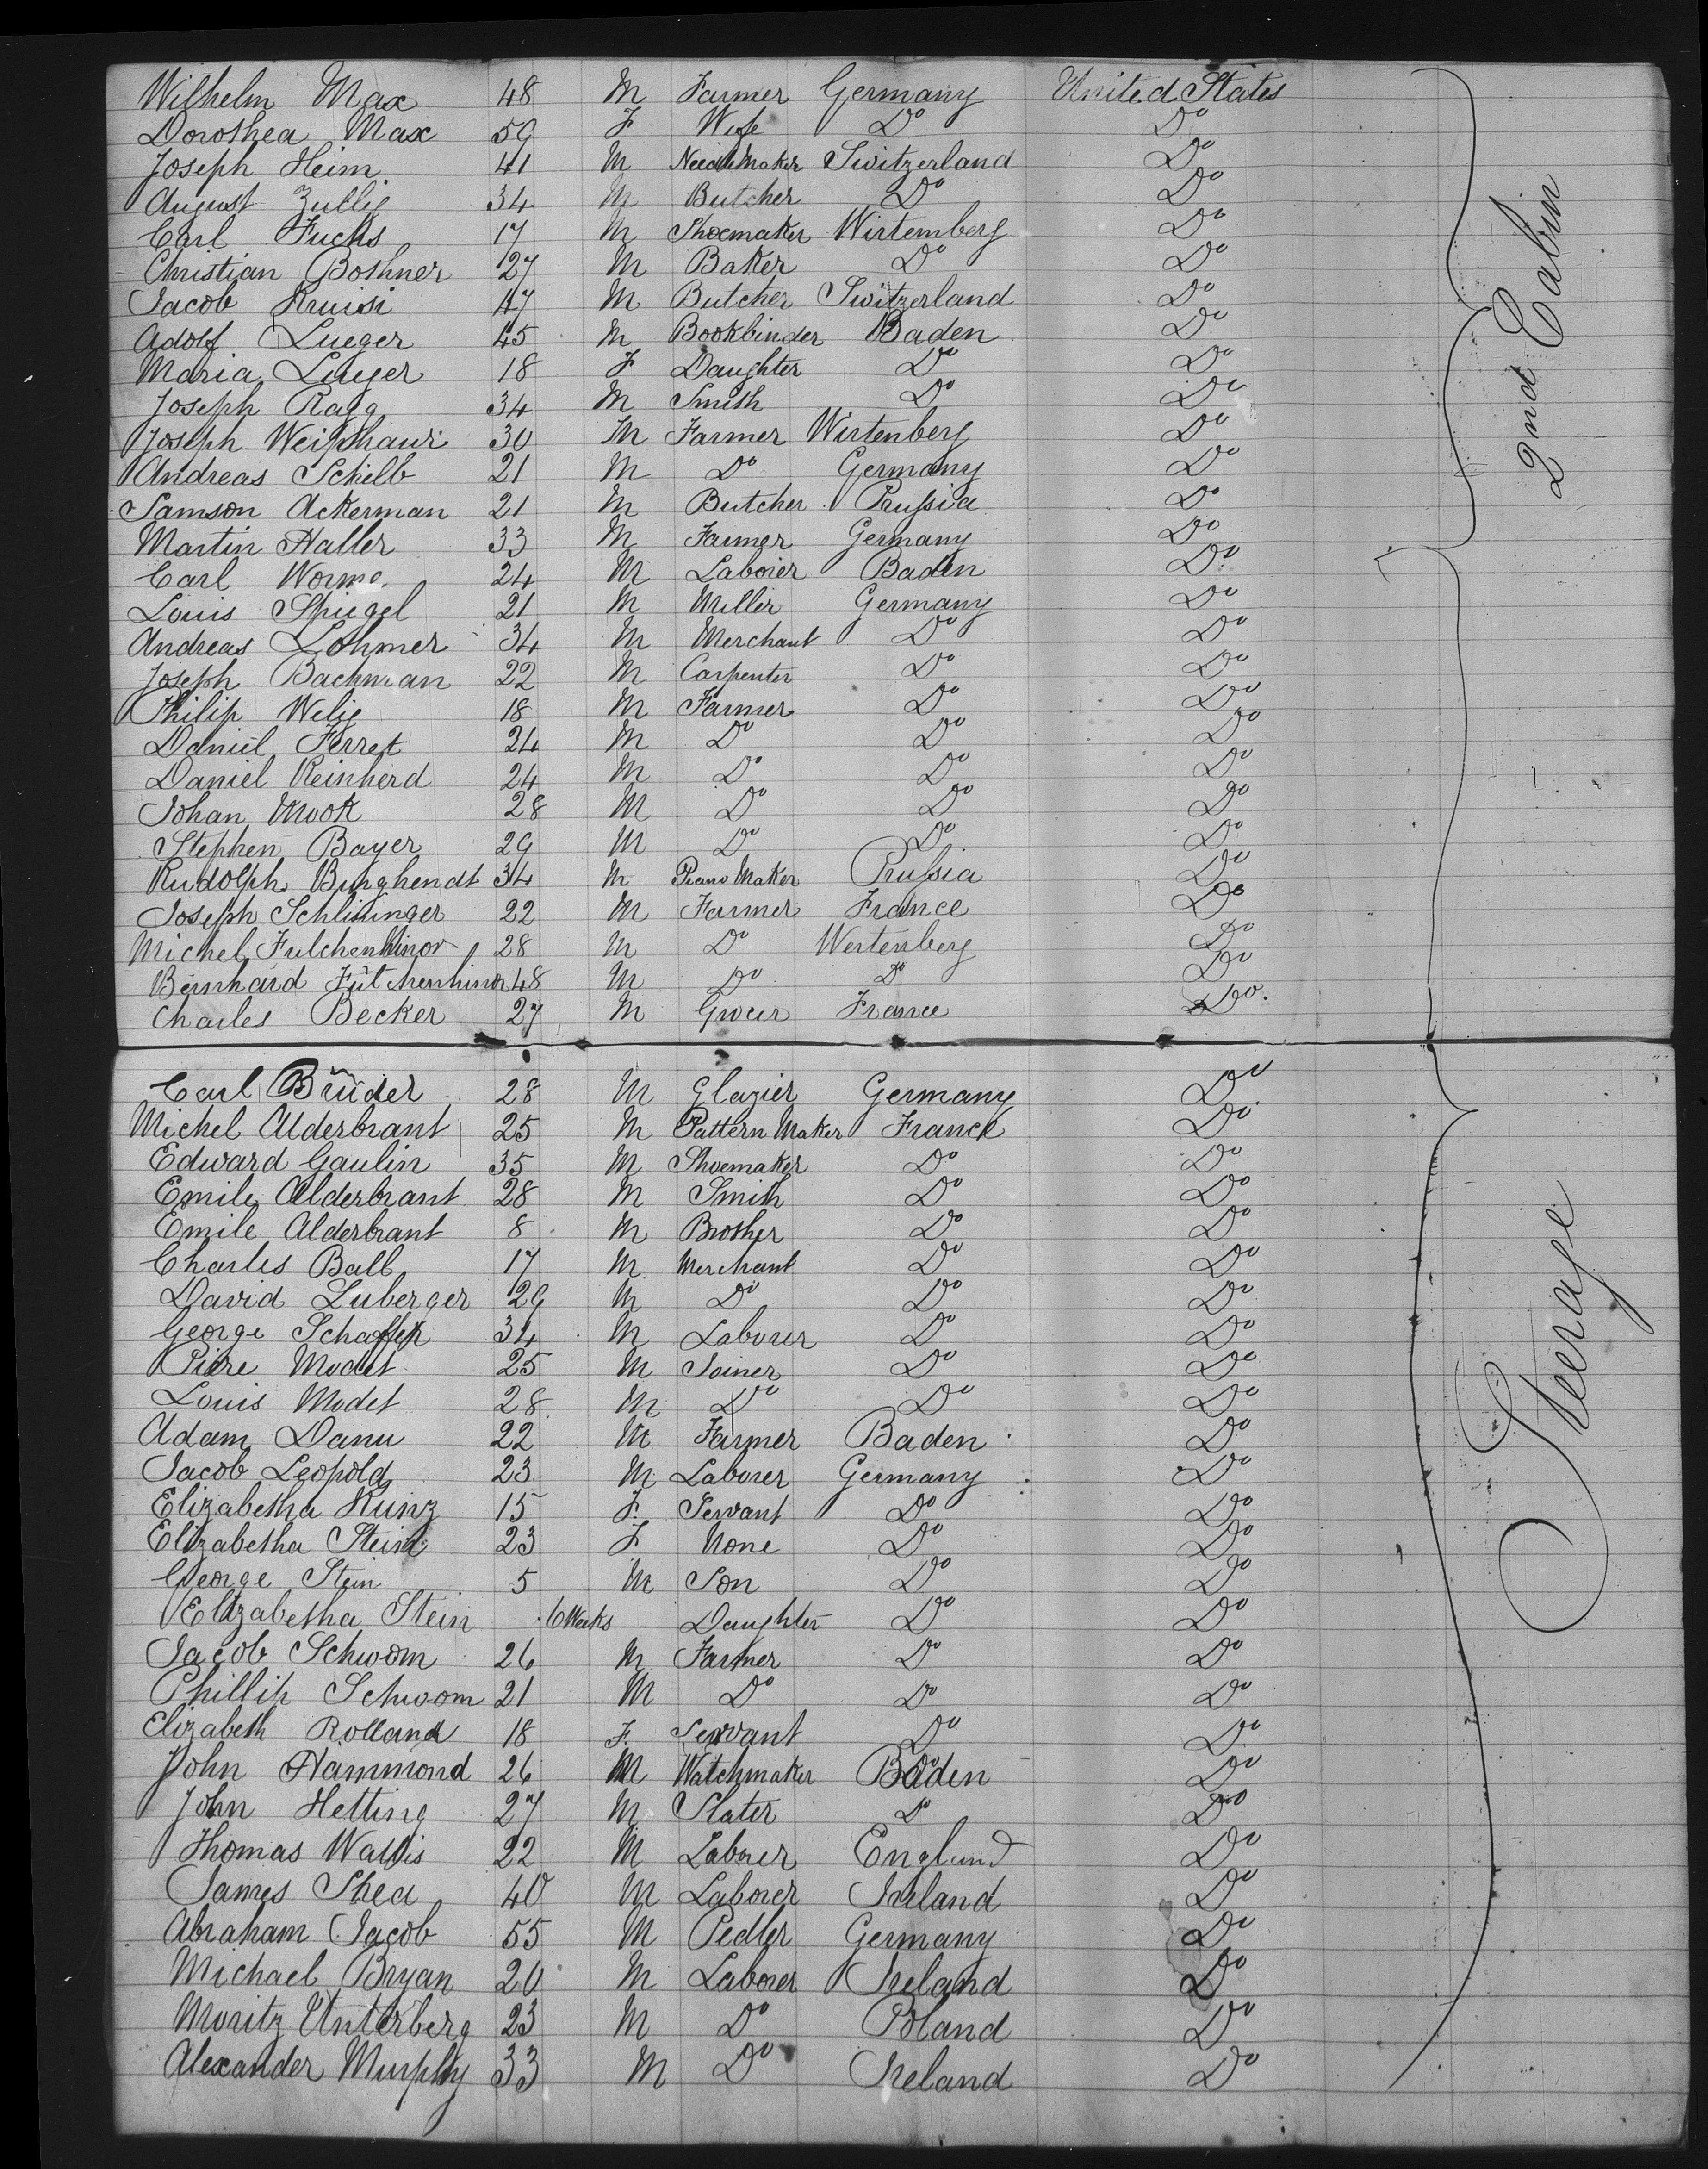 Wilhelm Max 48 M Farmer Germany United States
Dorothea Max 59 F Wife Do Do
Joseph Heim 41 M Needlemaker Switzerland Do
August Zullig 34 M Butcher Do Do
Carl Fuchs 17 M Shoemaker Wirtemberg Do
Christian Boshner 27 M Baker Do Do
Jacob Kruisi 47 M Butcher Switzerland Do
Adolf Lueger 45 M Bookbinder Baden Do
Maria Lueger 18 F Daughter Do Do
Joseph Ragg 34 M Smith Do Do
Joseph 30 M Farmer Wirtenberg Do
Andreas Schelb 21 M Do Germany Do
Samson Ackerman 21 M Butcher Prussia Do
Martin Haller 33 M Farmer Germany Do
Carl 24 M Laborer Baden Do
Louis Spiegel 21 M Miller Germany Do
Andreas Lohmer 34 M Merchant Do Do
Joseph Bachman 22 M Carpenter Do Do
Philip 18 M Farmer Do Do
Daniel Ferret 24 M Do Do Do
Daniel Reinherd 24 M Do Do Do
Johan Mook 28 M Do Do Do
Stephen Bayer 29 M Do Do Do
Rudolph Burghendt 34 M Piano Maker Prussia Do
Joseph 22 M Farmer France Do
Michel 28 M Do Wertenberg Do
Bernhard 48 M Do Do Do
Charles Becker 27 M Grocer France Do.
2nd Cabin
Carl Brüder 28 M Glazier Germany Do
Michel Alderbrant 25 M Pattern Maker France Do
Edward Gaulin 35 M Shoemaker Do Do
Emile Alderbrant 28 M Smith Do Do
Emile Alderbrant 8 M Brother Do Do
Charles Ball 17 M Merchant Do Do
David Luberger 29 M Do Do Do
George 34 M Laborer Do Do
Piere Modet 25 M Joiner Do Do
Louis Modet 28 M Do Do Do
Adam Danu 22 M Farmer Baden Do
Jacob Leopold 23 M Laborer Germany Do
Elizabetha Kunz 15 F. Servant Do Do
Elizabetha Stein 23 F. None Do Do
George Stein 5 M Son Do Do
Elizabetha Stein 6 Weeks Daughter Do Do
Jacob Schwom 26 M Farmer Do Do
Phillip Schwom 21 M Do Do Do
Elizabeth Rolland 18 F. Servant Do Do
John Hammond 26 M Watchmaker Baden Do
John Hetting 27 M Slater Do Do
Thomas Wallis 22 M Laborer England Do
James Shea 40 M Laborer Ireland Do
Abraham Jacob 55 M Pedler Germany Do
Michael Bryan 20 M Laborer Ireland Do
Moritz Unterberg 23 M Do Poland Do
Alexander Murphy 33 M Do Ireland Do
Steerage